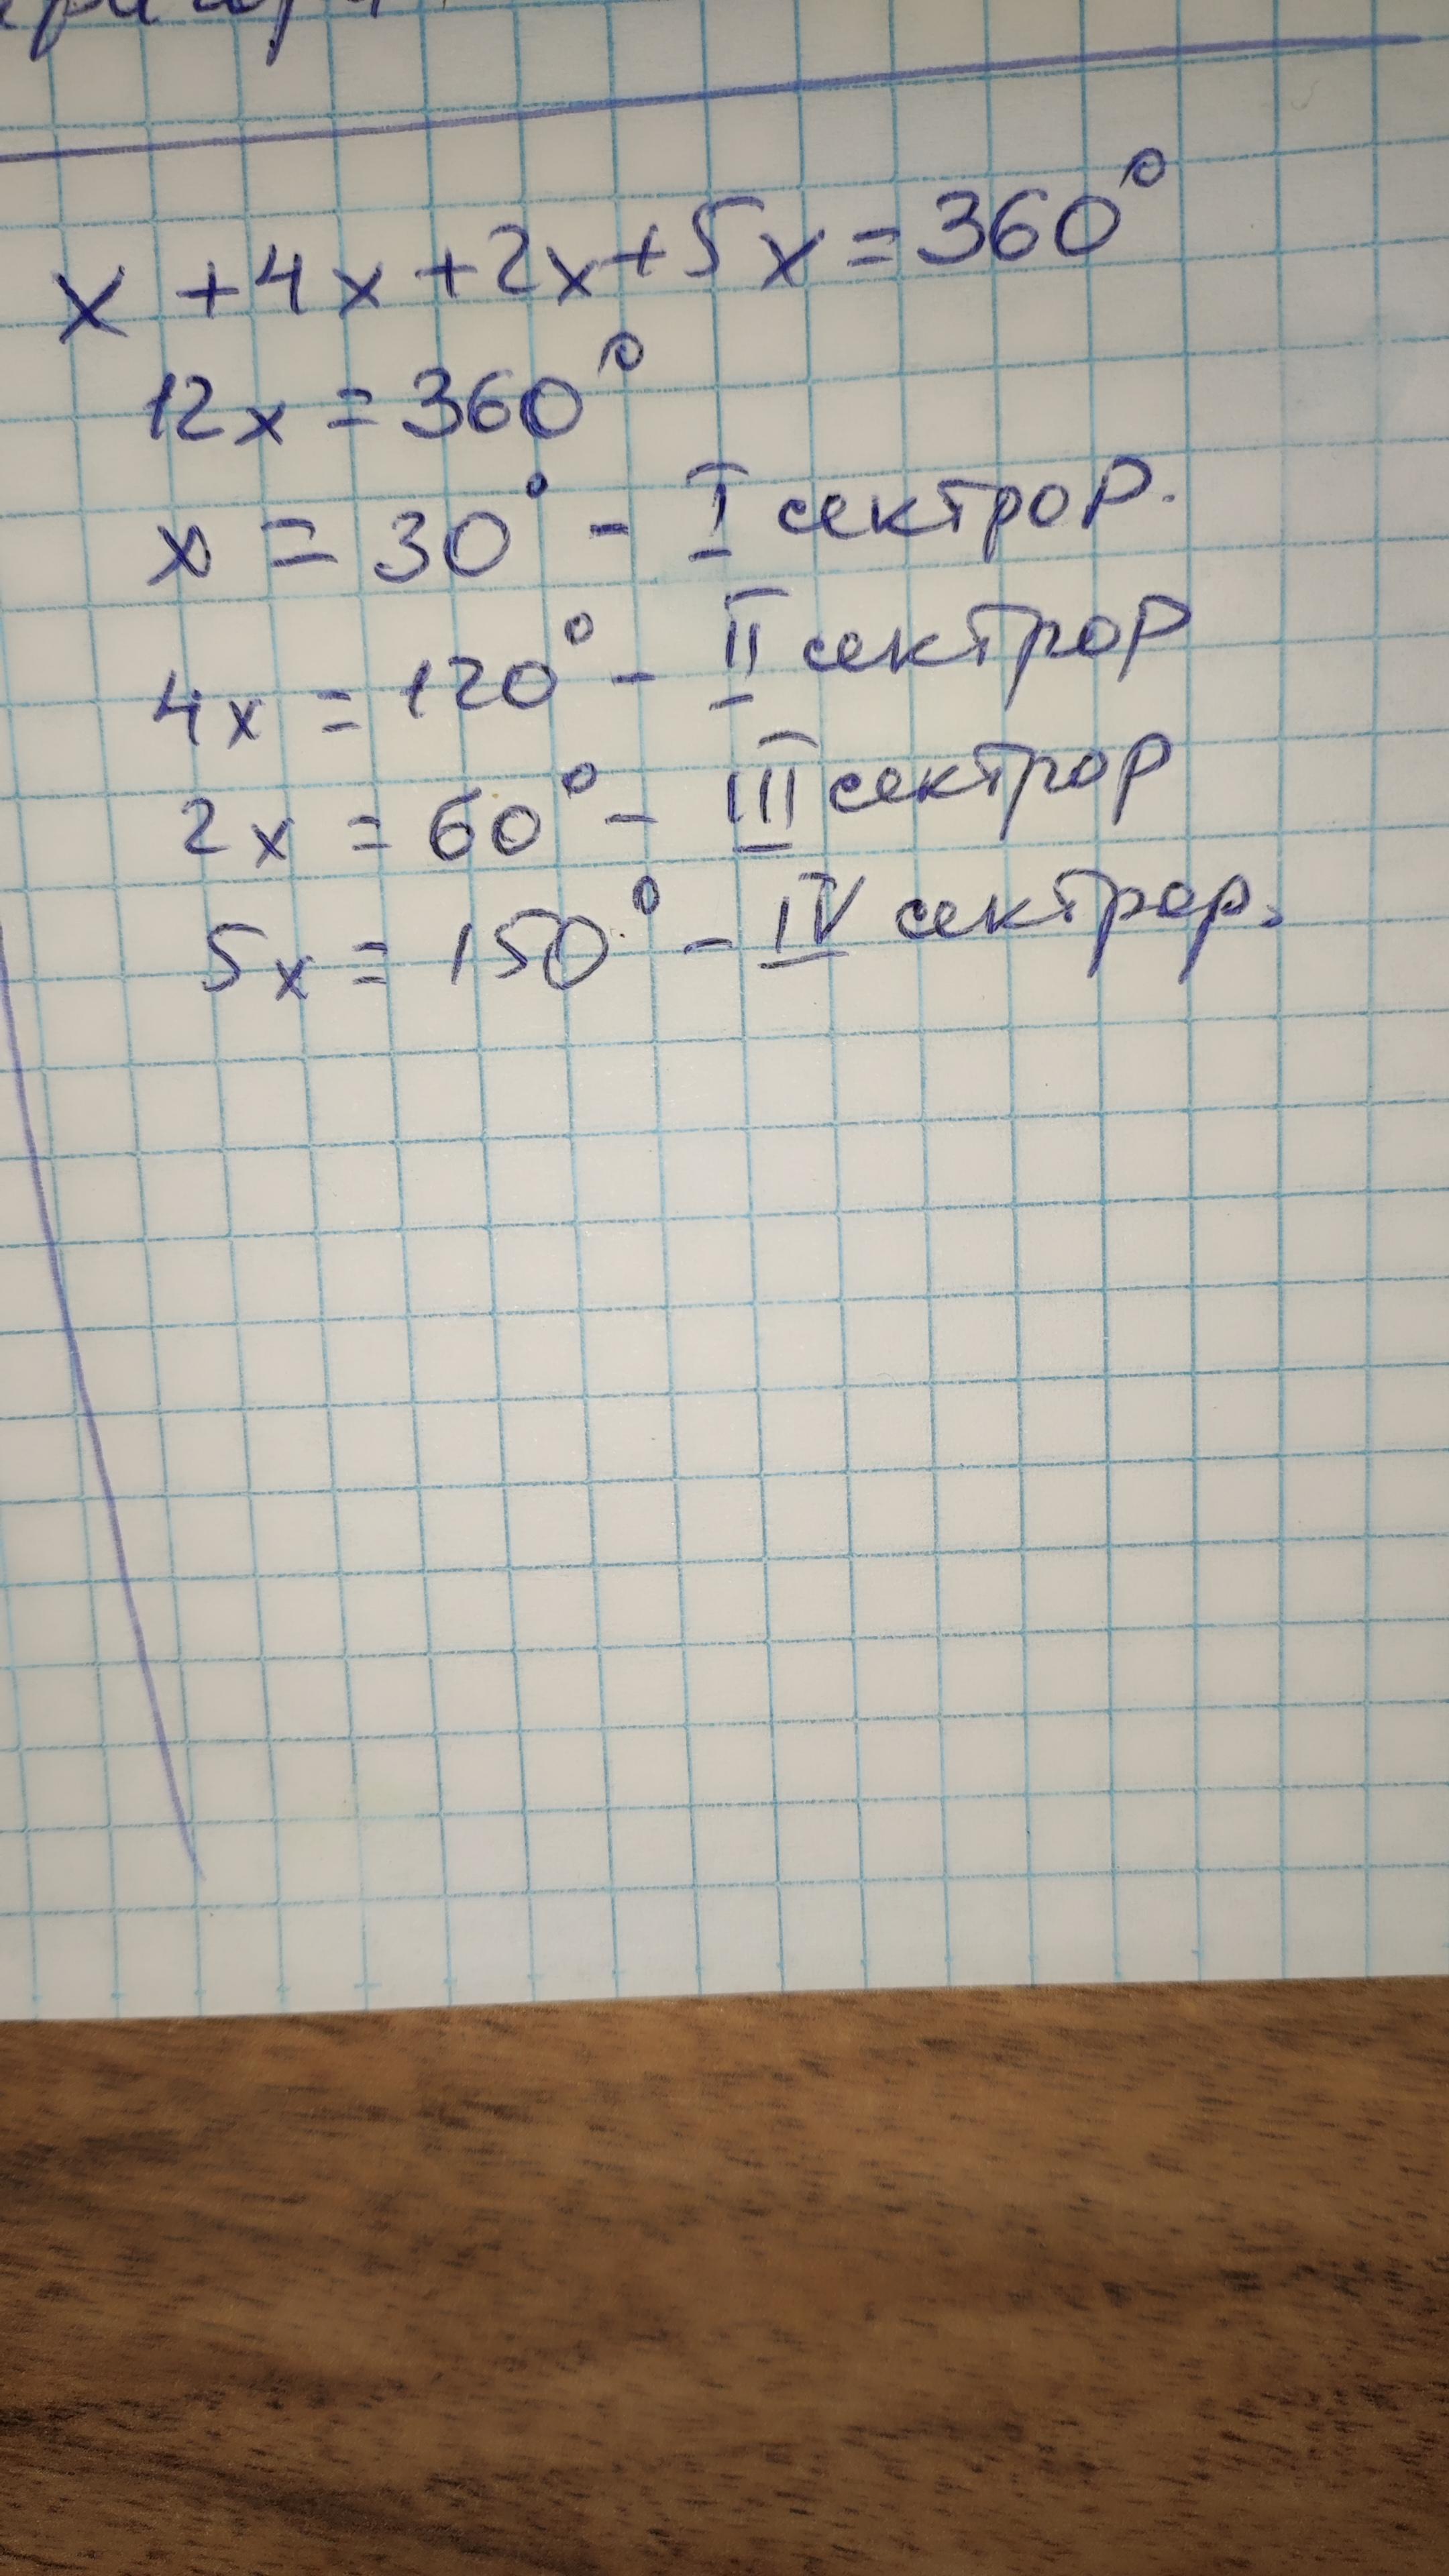 x + 4x + 2x + 5x = 360°
12x = 360°
x = 30° - I сектрор.
4x = 120° - II сектрор
2x = 60° - III сектрор
5x = 150° - IV сектрор.